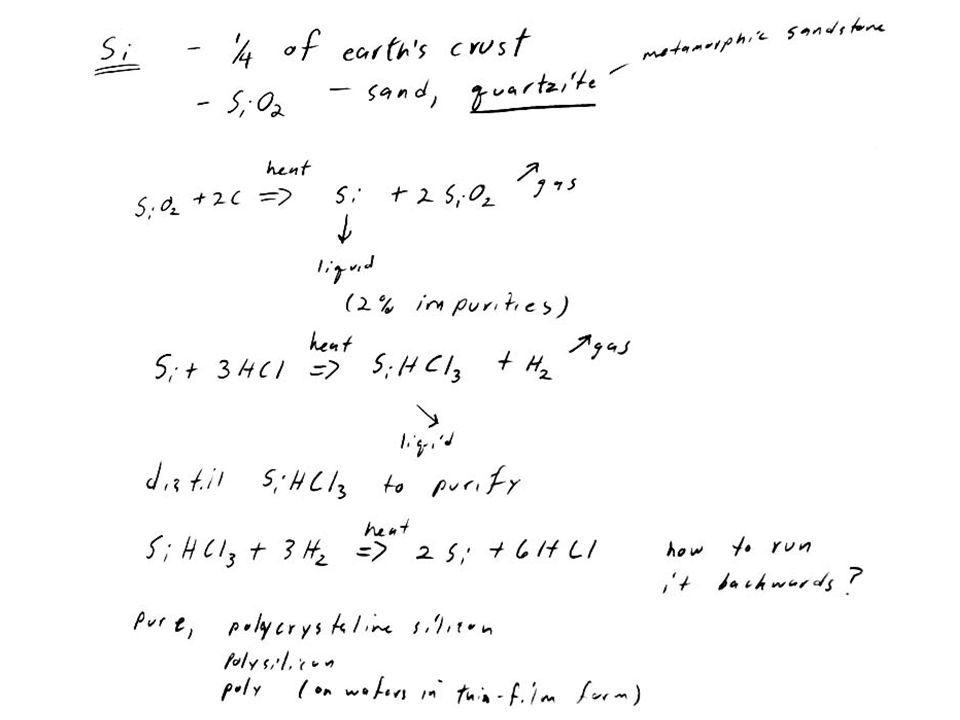 Si - 1/4 of earth's crust
- SiO2 - sand, quartzite - metamorphic sandstone
heat
SiO2 + 2C => Si + 2 SiO2 ↗gas
↓
liquid
(2% impurities)
heat
Si + 3HCl => SiHCl3 + H2 ↗gas
↘
liquid
distil SiHCl3 to purify
heat
SiHCl3 + 3H2 => 2 Si + 6HCl
how to run
it backwards?
pure, polycrystaline silicon
Polysilicon
poly (on wafers in thin-film form)